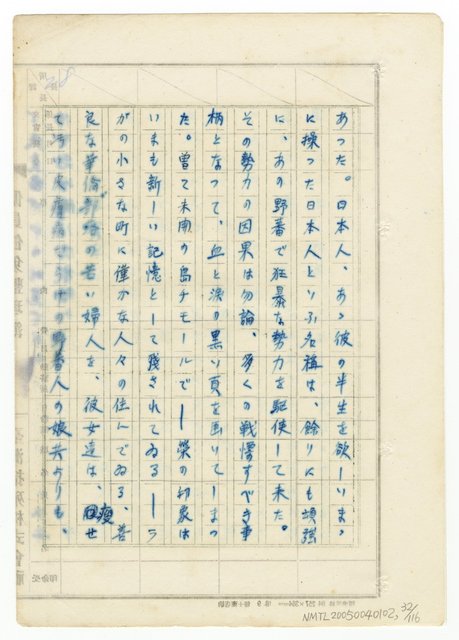 あつた。日本人、あゝ彼の半生を欲しいまゝ
に操つた日本人といふ名稱は、餘りにも頑強
に、あの野蕃で狂暴な勢力を駆使して来た。
その勢力の因果は勿論、多くの戦慄すべき事
柄となつて、血と涙の黒い頁を画いてしまつ
た。曽て未南の島チモールで――榮の印象は
いまも新しい記憶として残されてゐる――ラ
がの小さな町に僅かな人々の住んでゐる、善
良な華僑 の若い婦人を、彼女達は、瘦せ
て 皮膚 の野蕃人の娘共よりも、
NMTL20050040102, 32/116